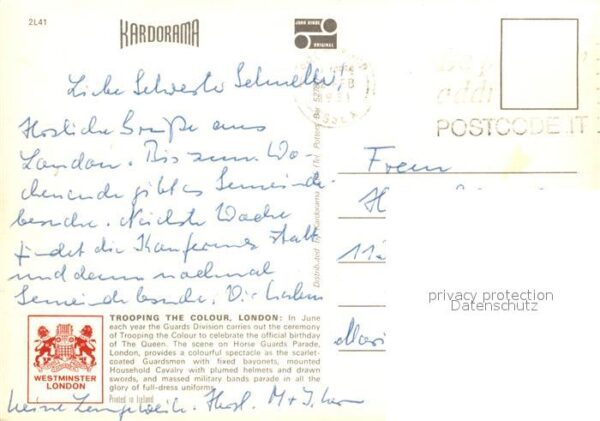 2L41
KARDORAMA
JOHN HINDE
ORIGINAL
Liebe Schwester Schneller!
Herzliche Grüße aus
London. Bis zum Wo-
chenende gibt es Gemeinde-
besuche. Nächste Woche
findet die Konferenz statt
und dann nochmal
Gemeindebesuche. Wir haben
keine Langeweile. Herzl. M + J.
POSTCODE IT
Distributed by Kardorama Ltd., Potters Bar
Frau
H
11
Mari
privacy protection
Datenschutz
WESTMINSTER
LONDON
TROOPING THE COLOUR, LONDON: In June
each year the Guards Division carries out the ceremony
of Trooping the Colour to celebrate the official birthday
of The Queen. The scene on Horse Guards Parade,
London, provides a colourful spectacle as the scarlet-
coated Guardsmen with fixed bayonets, mounted
Household Cavalry with plumed helmets and drawn
swords, and massed military bands parade in all the
glory of full-dress uniforms.
Printed in Ireland